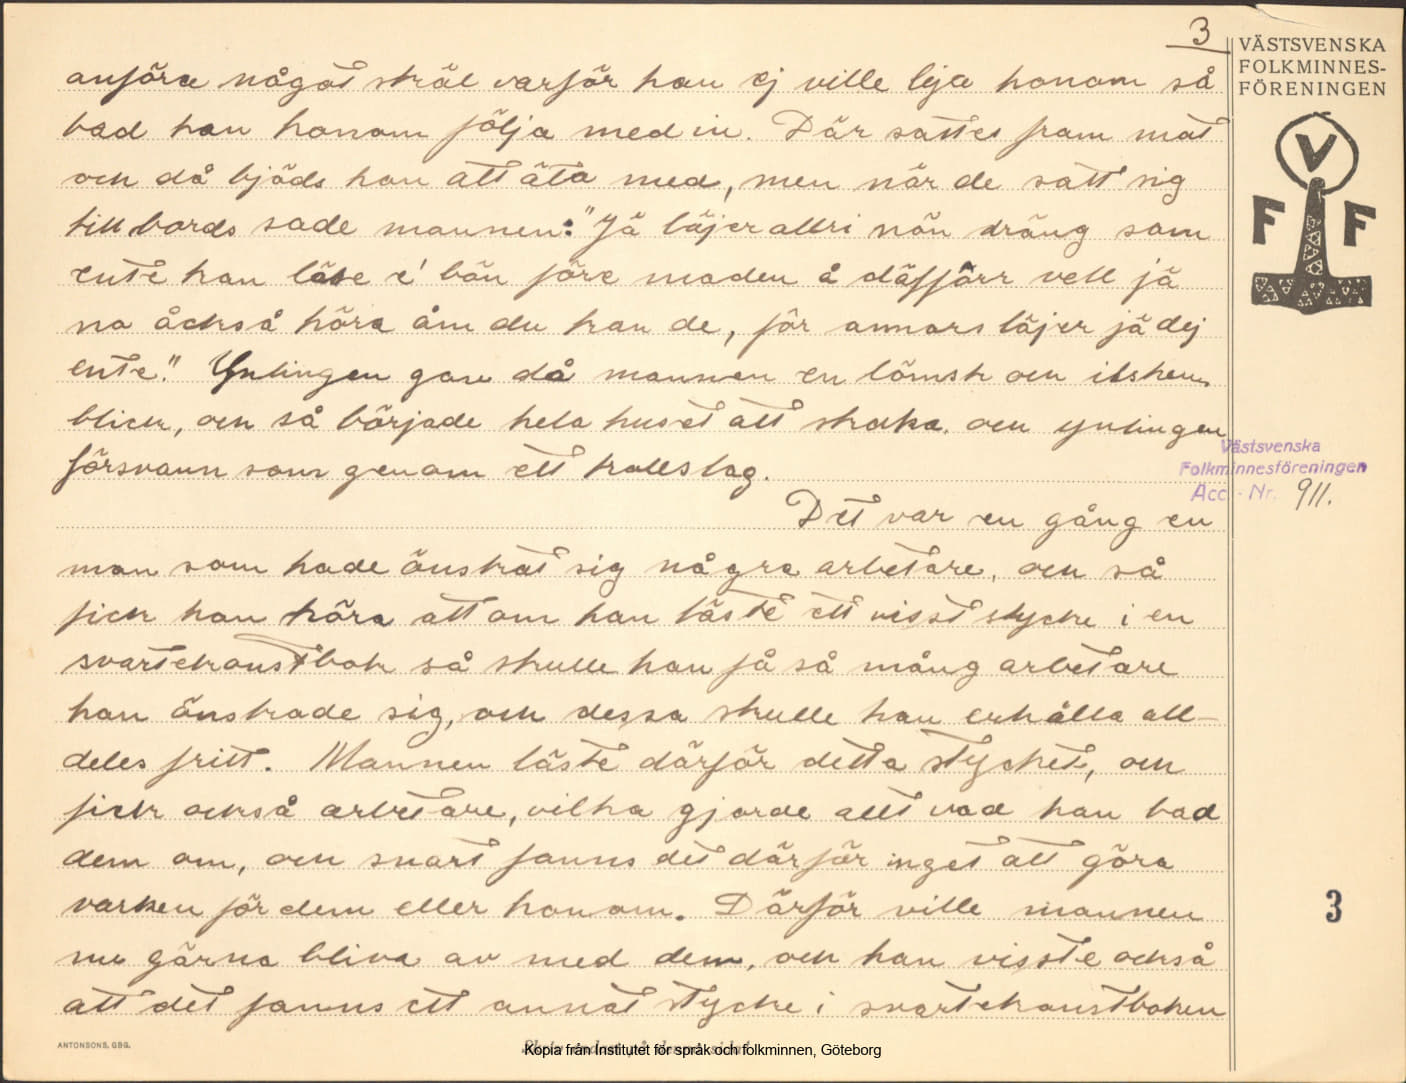 3
VÄSTSVENSKA
FOLKMINNES-
FÖRENINGEN
V
F F
anföra något skäl varför han ej ville leja honom så
bad han honom följa med in. Där sattes fram mat
och då bjöds han att äta med, men när de satt sig
till bords sade mannen: "Jä läjer allri nön dräng som
ente kan läse e' bön före maden å däfförr vell jä
no åckså höra åm du kan de, för annars läjer jä dej
ente." Ynlingen gav då mannen en lömsk och ilsken
blick, och så började hela huset att skaka och ynlingen
försvann som genom ett trollslag.
Västsvenska
Folkminnesföreningen
Acc.-Nr. 911.
Det var en gång en
man som hade önskat sig några arbetare, och så
fick han höra att om han läste ett visst stycke i en
svartekonstbok så skulle han få så mång arbetare
han önskade sig, och dessa skulle han erhålla all-
deles fritt. Mannen läste därför detta stycket, och
fick också arbetare, vilka gjorde allt vad han bad
dem om, och snart fanns det därför inget att göra
varken för dem eller honom. Därför ville mannen
nu gärna bliva av med dem, och han visste också
att det fanns ett annat stycke i svartekonstboken
3
ANTONSONS, GBG.
Skriv endast på denna sida!
Kopia från Institutet för språk och folkminnen, Göteborg